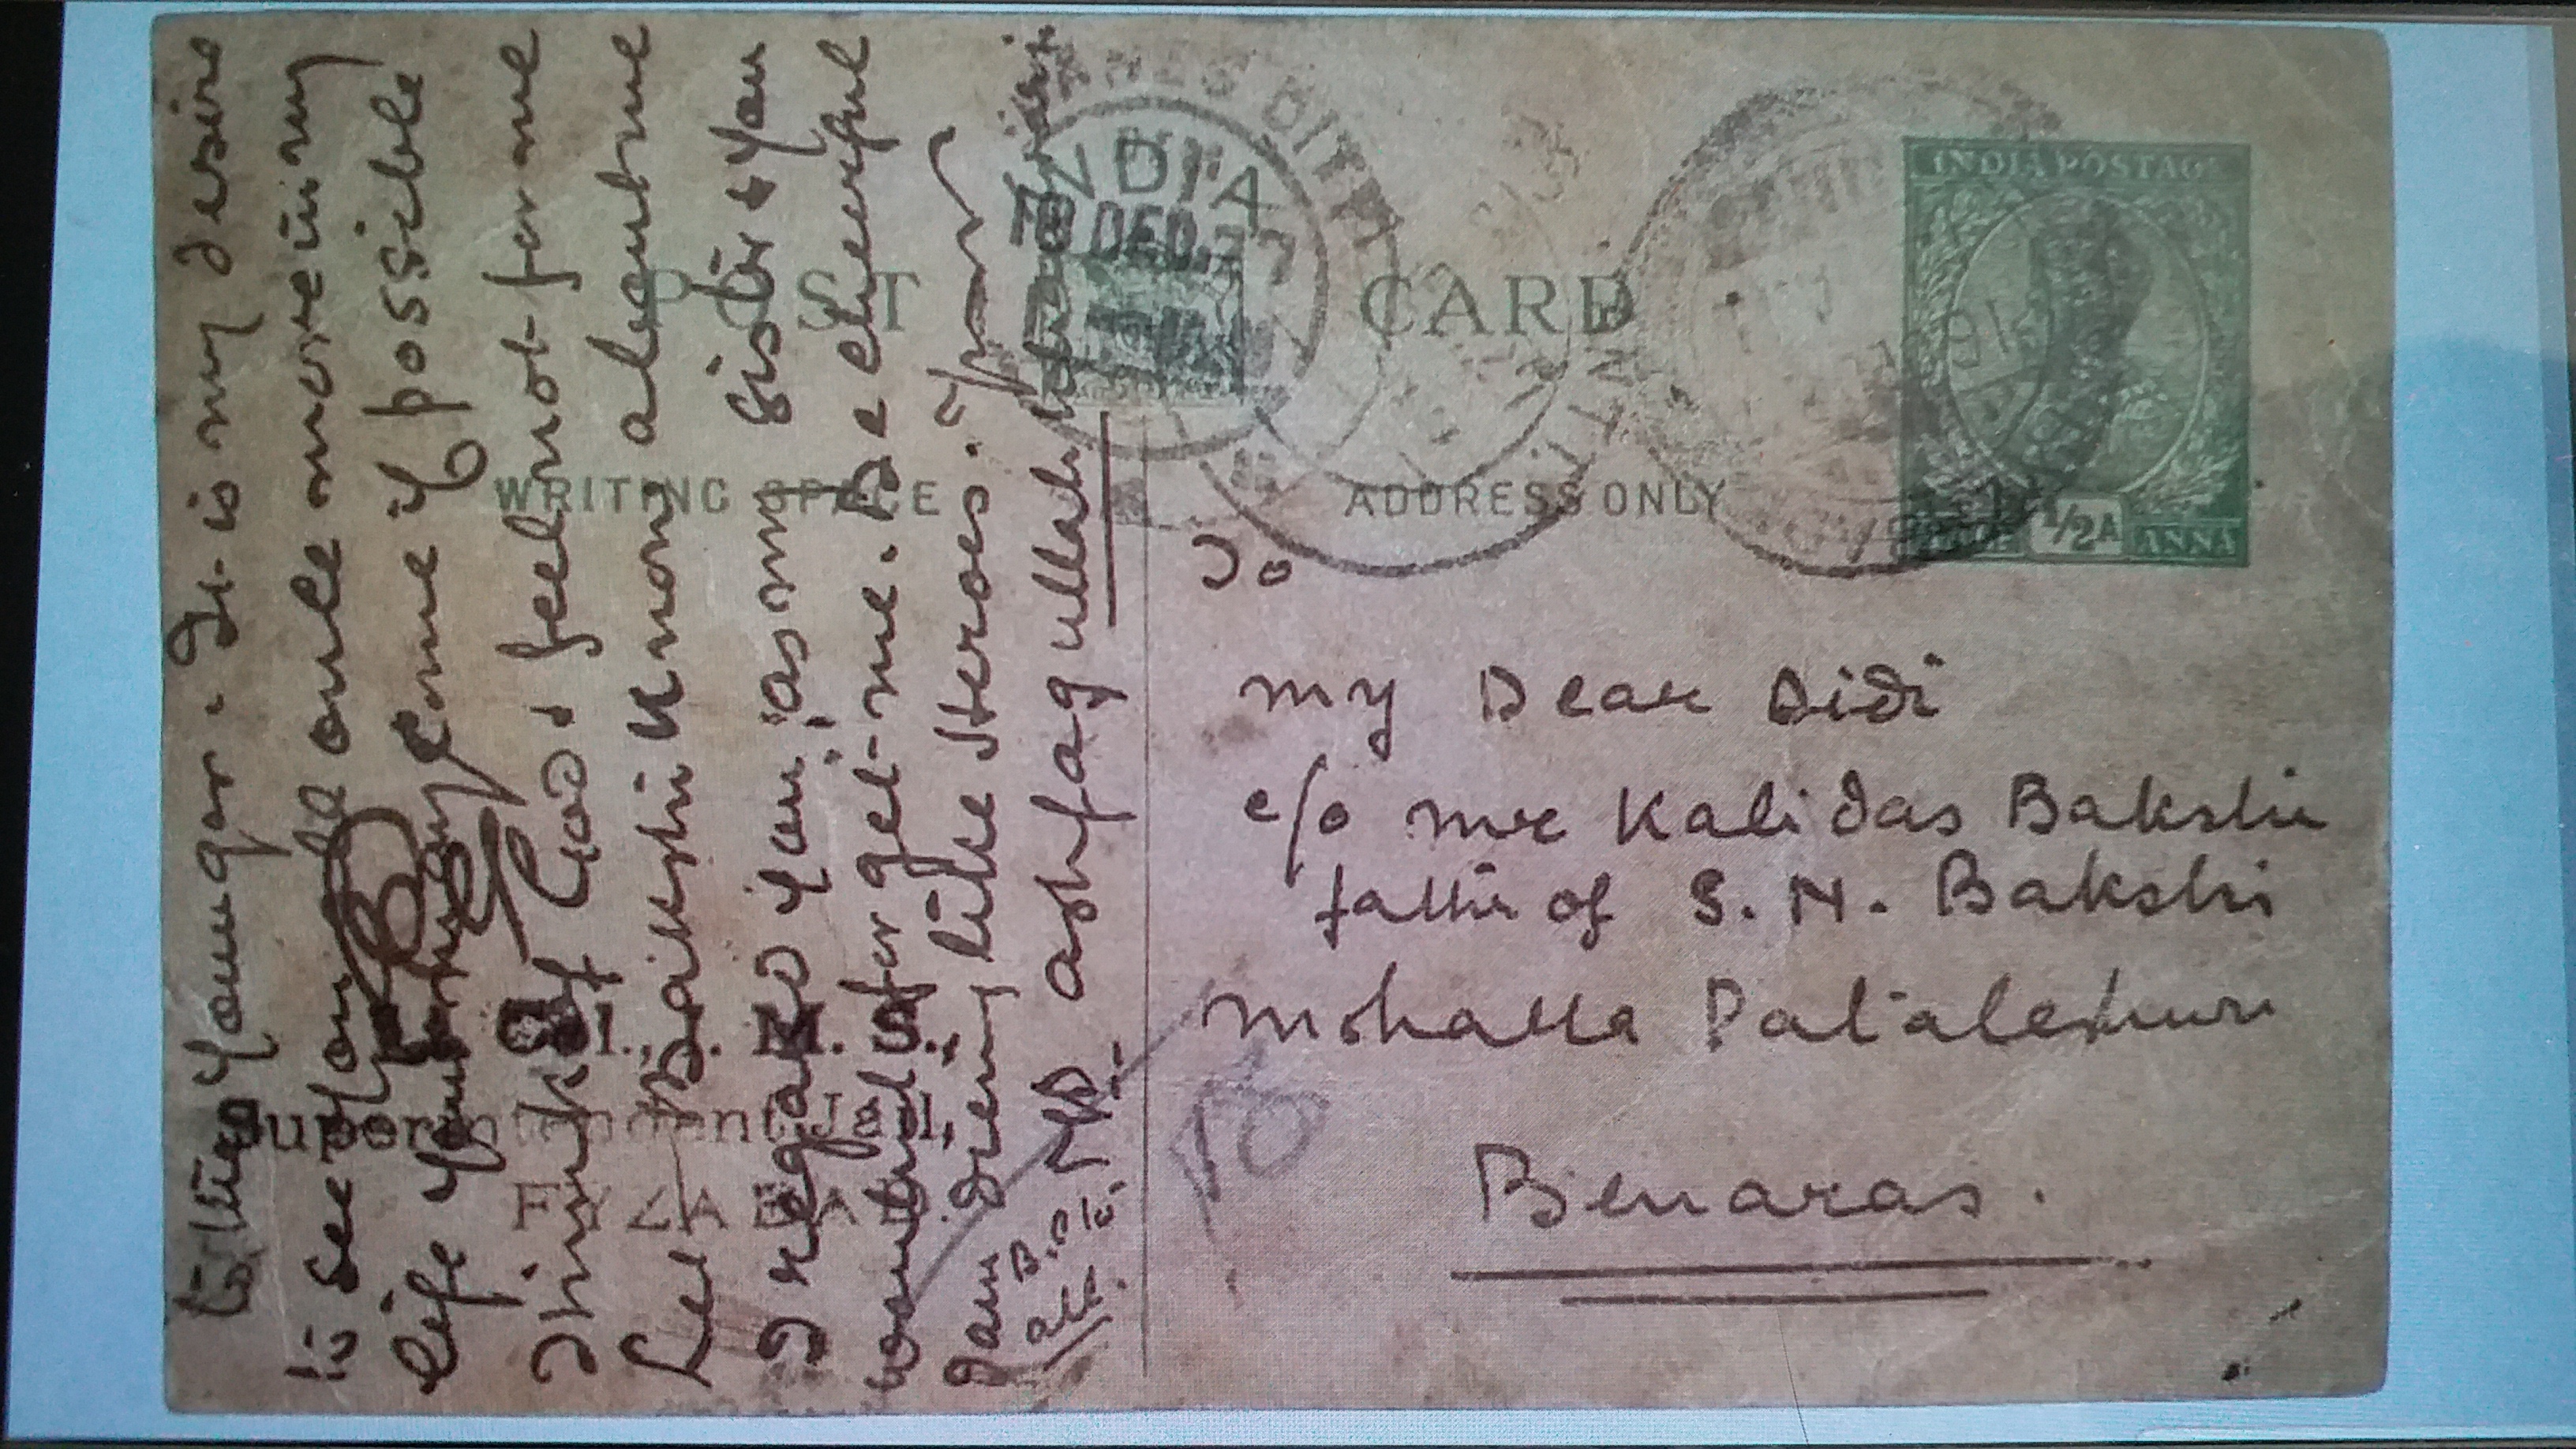 to the younger. It is my desire
to see you all once more in my
life you may come if possible
Think of God & feel not for me
Let Bakshi know about me
I regard you as my sister & you
wont forget me. Be cheerful
I am dieing like Heroes. Your
ashfaqullah
POST CARD
WRITING SPACE
ADDRESS ONLY
Superintendent Jail,
FYZABAD.
To
My Dear Didi
c/o Mr Kali das Bakshi
father of S. N. Bakshi
Mohalla Pataleshuri
Benaras.
INDIA POSTAGE
1/2 A
ANNA
INDIA
DEC. 27